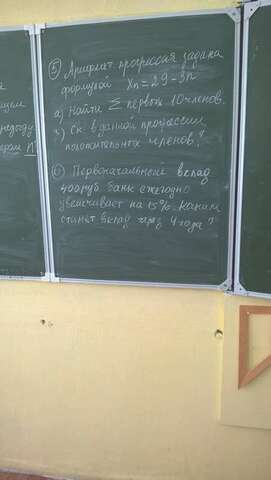 ⑤ Арифмет прогрессия задана
формулой Xn = 29 - 3n
а) Найти Σ первых 10 членов.
Ск. в данной прогрессии
положительных членов?
⑥ Первоначальный вклад
400 руб банк ежегодно
увеличивает на 15%. Каким
станет вклад через 4 года?